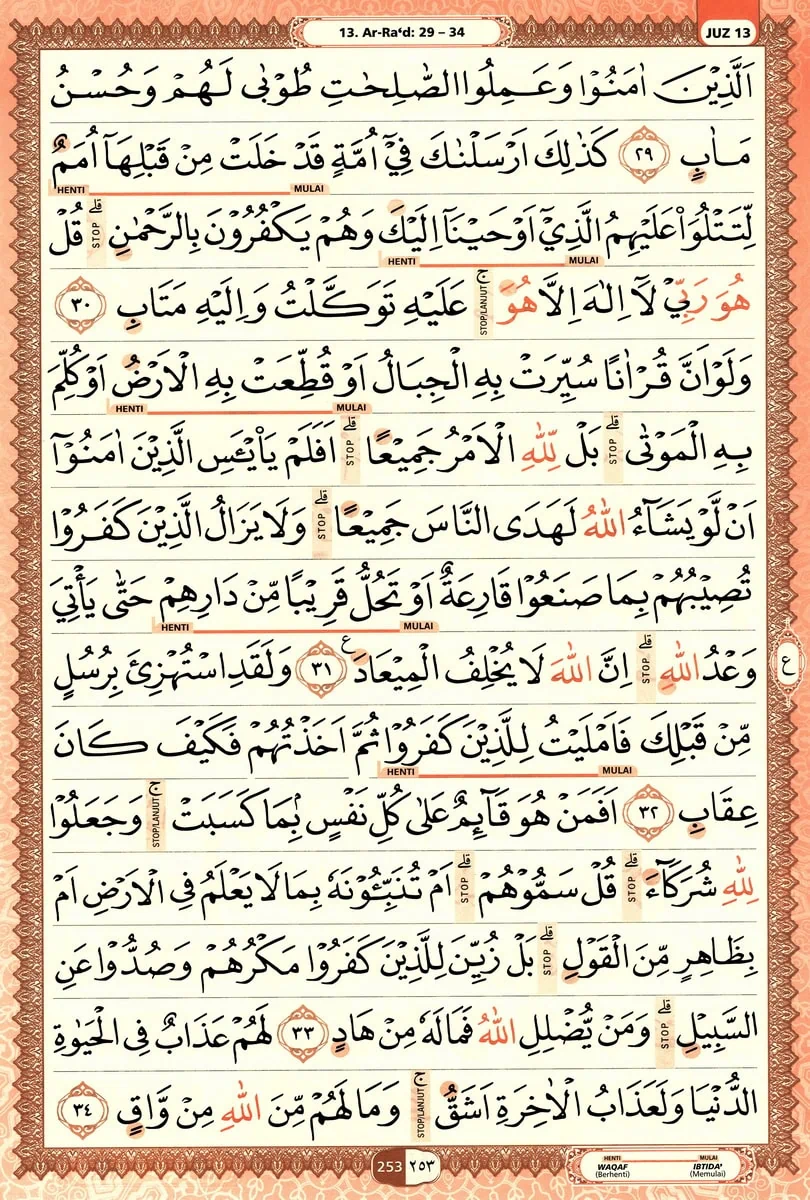 13. Ar-Ra‘d: 29 – 34
JUZ 13
اَلَّذِيْنَ اٰمَنُوْا وَعَمِلُوا الصّٰلِحٰتِ طُوْبٰى لَهُمْ وَحُسْنُ
مَاٰبٍ ٢٩ كَذٰلِكَ اَرْسَلْنٰكَ فِيْٓ اُمَّةٍ قَدْ خَلَتْ مِنْ قَبْلِهَآ اُمَمٌ
MULAI HENTI
لِّتَتْلُوَا۟ عَلَيْهِمُ الَّذِيْٓ اَوْحَيْنَآ اِلَيْكَ وَهُمْ يَكْفُرُوْنَ بِالرَّحْمٰنِ ۗ STOP قُلْ
MULAI HENTI
هُوَ رَبِّيْ لَآ اِلٰهَ اِلَّا هُوَ ۚ STOP/LANJUT عَلَيْهِ تَوَكَّلْتُ وَاِلَيْهِ مَتَابِ ٣٠
وَلَوْ اَنَّ قُرْاٰنًا سُيِّرَتْ بِهِ الْجِبَالُ اَوْ قُطِّعَتْ بِهِ الْاَرْضُ اَوْ كُلِّمَ
MULAI HENTI
بِهِ الْمَوْتٰى ۗ STOP بَلْ لِّلّٰهِ الْاَمْرُ جَمِيْعًا ۗ STOP اَفَلَمْ يَا۟يْـَٔسِ الَّذِيْنَ اٰمَنُوْٓا
اَنْ لَّوْ يَشَاۤءُ اللّٰهُ لَهَدَى النَّاسَ جَمِيْعًا ۗ STOP وَلَا يَزَالُ الَّذِيْنَ كَفَرُوْا
تُصِيْبُهُمْ بِمَا صَنَعُوْا قَارِعَةٌ اَوْ تَحُلُّ قَرِيْبًا مِّنْ دَارِهِمْ حَتّٰى يَأْتِيَ
MULAI HENTI
وَعْدُ اللّٰهِ ۗ STOP اِنَّ اللّٰهَ لَا يُخْلِفُ الْمِيْعَادَ ع ٣١ وَلَقَدِ اسْتُهْزِئَ بِرُسُلٍ
ع
مِّنْ قَبْلِكَ فَاَمْلَيْتُ لِلَّذِيْنَ كَفَرُوْا ثُمَّ اَخَذْتُهُمْ فَكَيْفَ كَانَ
MULAI HENTI
عِقَابِ ٣٢ اَفَمَنْ هُوَ قَاۤىِٕمٌ عَلٰى كُلِّ نَفْسٍۢ بِمَا كَسَبَتْ ۚ STOP/LANJUT وَجَعَلُوْا
لِلّٰهِ شُرَكَاۤءَ ۗ STOP قُلْ سَمُّوْهُمْ ۗ STOP اَمْ تُنَبِّـُٔوْنَهٗ بِمَا لَا يَعْلَمُ فِى الْاَرْضِ اَمْ
بِظَاهِرٍ مِّنَ الْقَوْلِ ۗ STOP بَلْ زُيِّنَ لِلَّذِيْنَ كَفَرُوْا مَكْرُهُمْ وَصُدُّوْا عَنِ
السَّبِيْلِ ۗ STOP وَمَنْ يُّضْلِلِ اللّٰهُ فَمَا لَهٗ مِنْ هَادٍ ٣٣ لَهُمْ عَذَابٌ فِى الْحَيٰوةِ
الدُّنْيَا وَلَعَذَابُ الْاٰخِرَةِ اَشَقُّ ۚ STOP/LANJUT وَمَا لَهُمْ مِّنَ اللّٰهِ مِنْ وَّاقٍ ٣٤
253 ٢٥٣
HENTI MULAI
WAQAF IBTIDA’
(Berhenti) (Memulai)